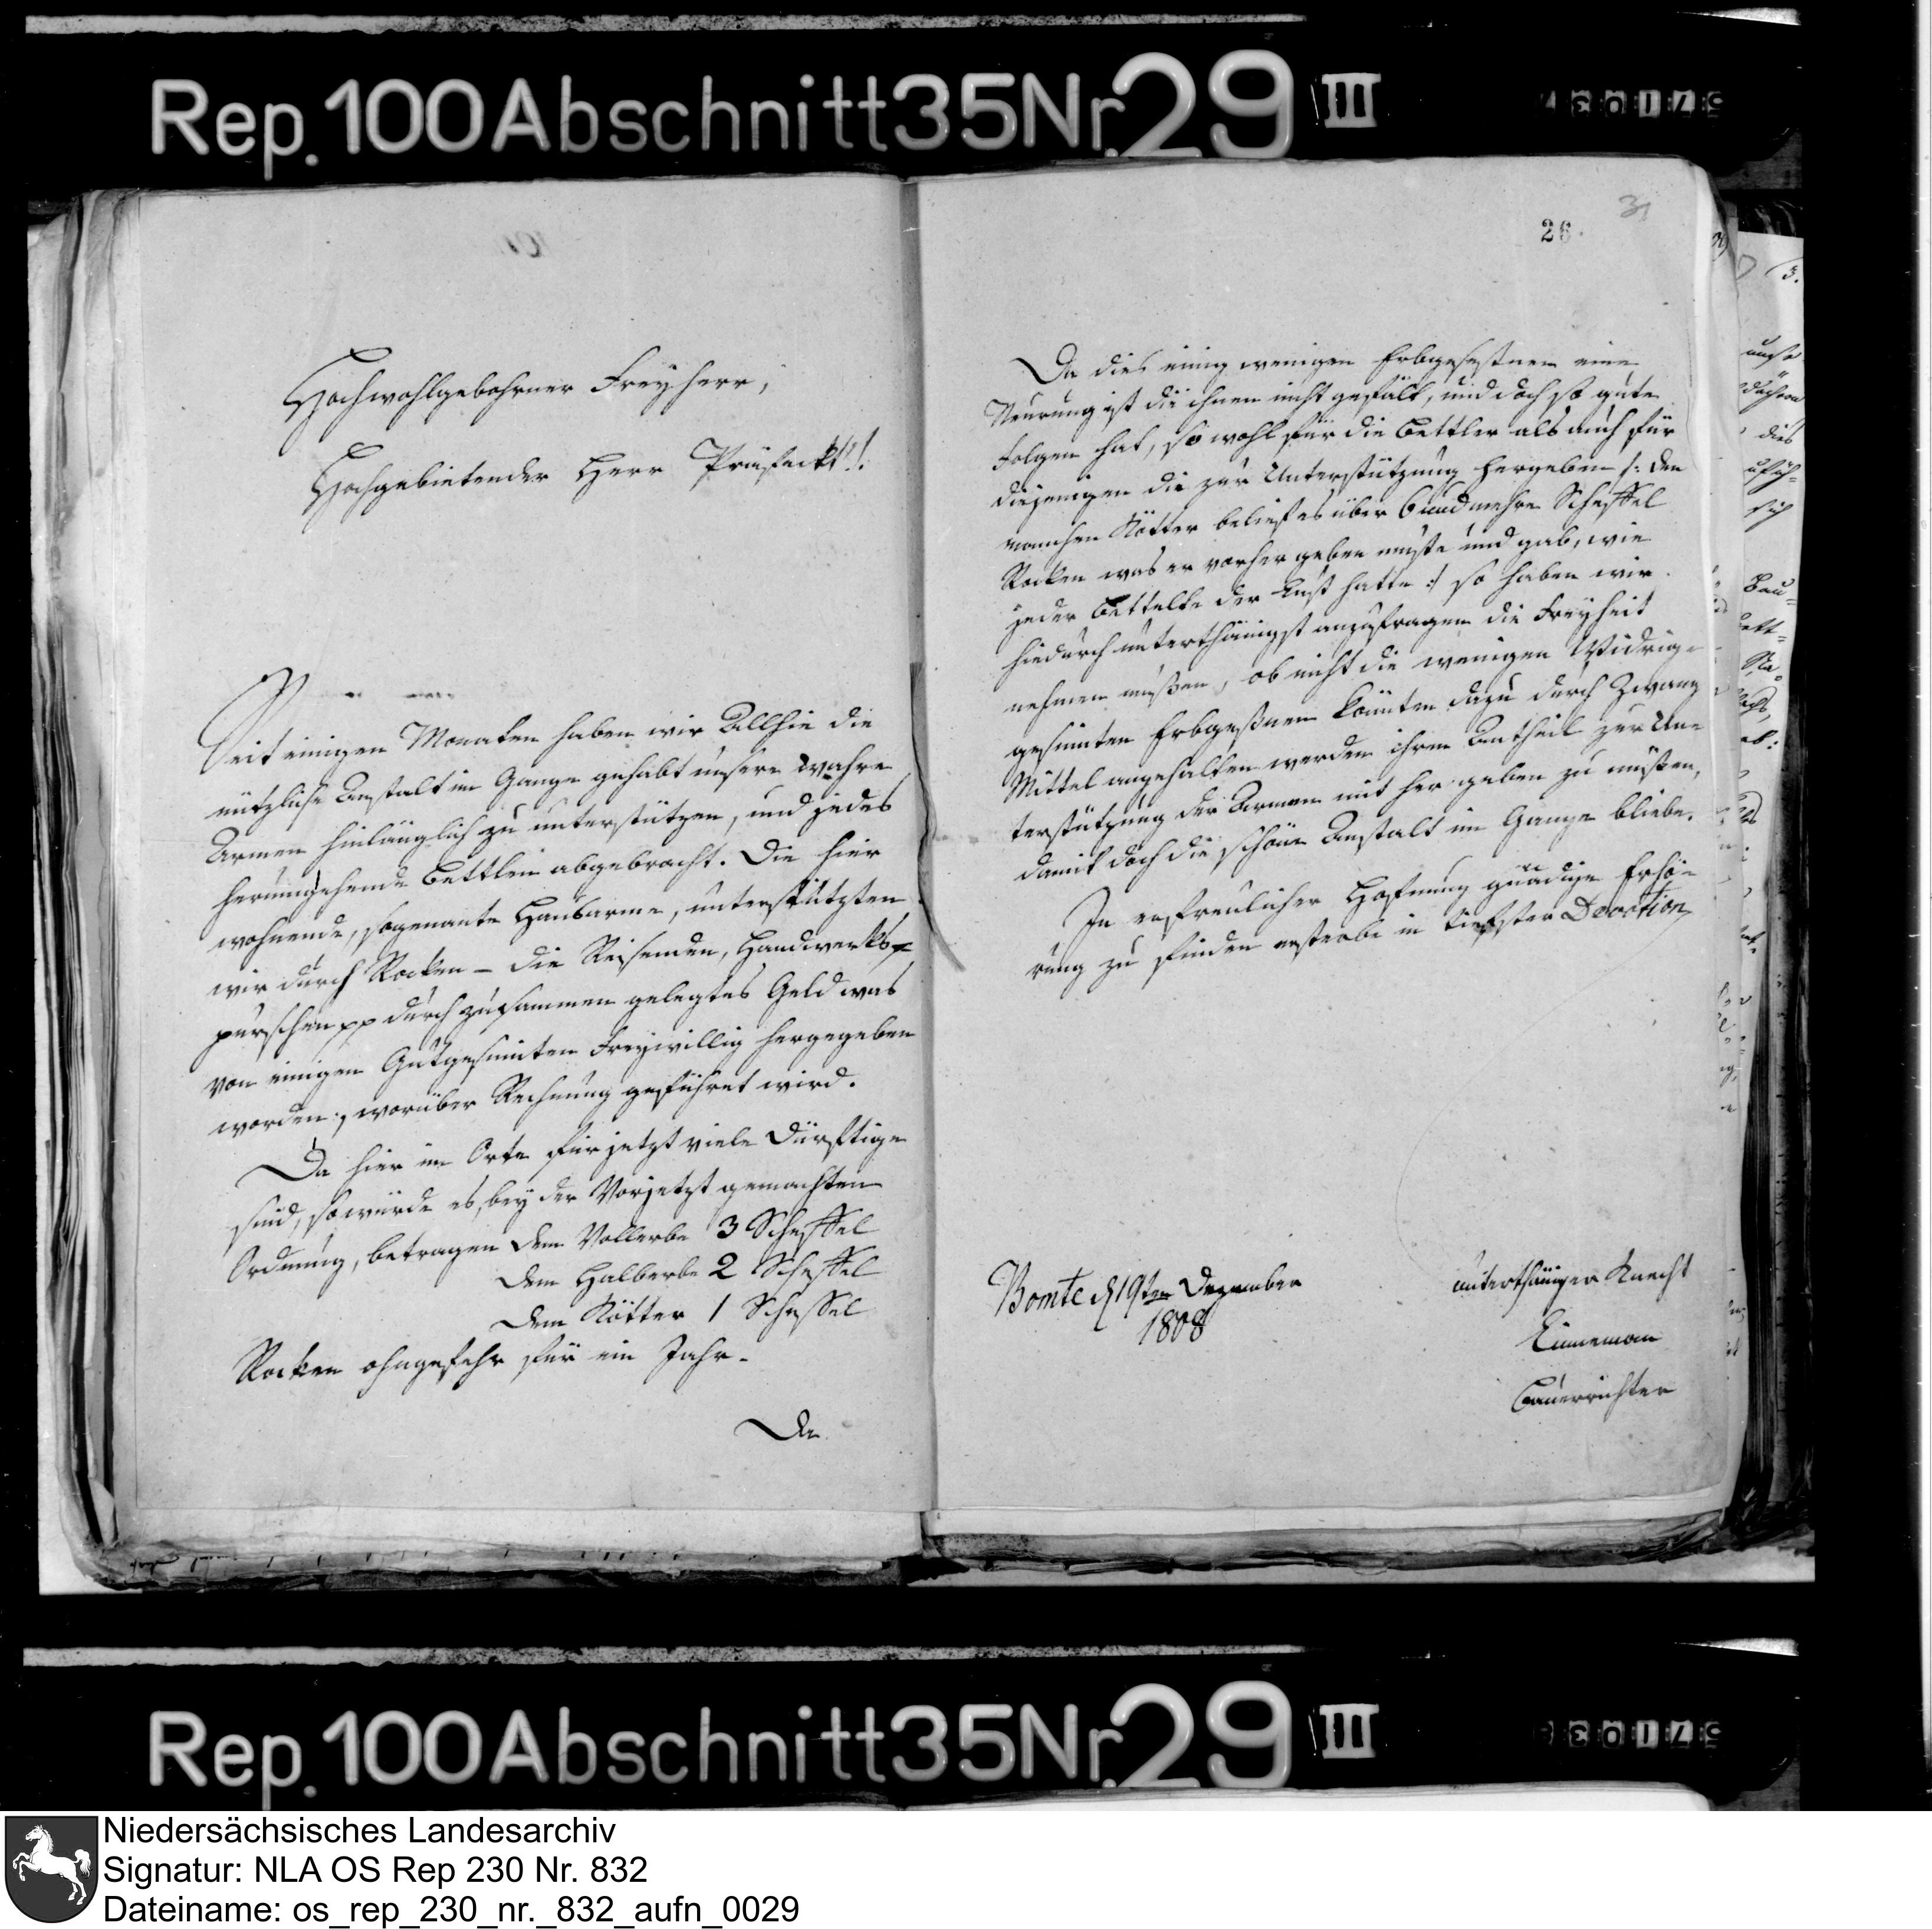 Rep. 100 Abschnitt 35 Nr. 29 III
Hochwohlgebohrner Freyherr,
Hochgebietender Herr Präfeckt!!
Seit einigen Monaten haben wir Allhie die
nützliche Anstalt im Gange gehabt unsere wahre
Armen hinlänglich zu unterstützen, und jedes
herumgehende Bettlen abgebracht. Die hier
wohnende, sogenante Hausarme, unterstützten
wir durch Rocken - die Reisenden, Handwerks=
purschen pp durch zusammen gelegtes Geld was
von einigen Gutgesinten Freywillig hergegeben
worden, worüber Rechnung geführet wird.
Da hier im Orte für jetzt viele Dürftige
sind, so würde es, bey der Vorjetzt gemachten
Ordnung, betragen dem Vollerbe 3 Scheffel
dem Halberbe 2 Scheffel
dem Kötter 1 Scheffel
Rocken ohngefehr für ein Jahr.
Da
26.
31
Da dies einig wenigen Erbgesestnen eine
Neurung ist die ihnen nicht gefält, und doch so gute
Folgen hat, so wohl für die Bettler als auch für
diejenigen die zur Unterstützung hergeben /: den
manchen Kötter belief es über 6 und mehre Scheffel
Rocken was er vorher geben muste und gab, wie
jeder Bettelte der Lust hatte :/ so haben wir
hiedurch unterthänigst anzufragen die Freyheit
nehmen müßen, ob nicht die wenigen Widrig=
gesinten Erbgeßnen könnten dazu durch Zwang
Mittel angehalten werden ihren Antheil zur Un=
terstützung der Armen mit her geben zu müßen,
damit doch die schöne Anstalt im Gange bliebe.
In erfreulicher Hofnung gnädige Erhö=
rung zu finden ersterbe in tiefster Devotion
Bomte d 19ten Dezember
1808
unterthäniger Knecht
Linneman
Bauerrichter
Rep. 100 Abschnitt 35 Nr. 29 III
Niedersächsisches Landesarchiv
Signatur: NLA OS Rep 230 Nr. 832
Dateiname: os_rep_230_nr._832_aufn_0029